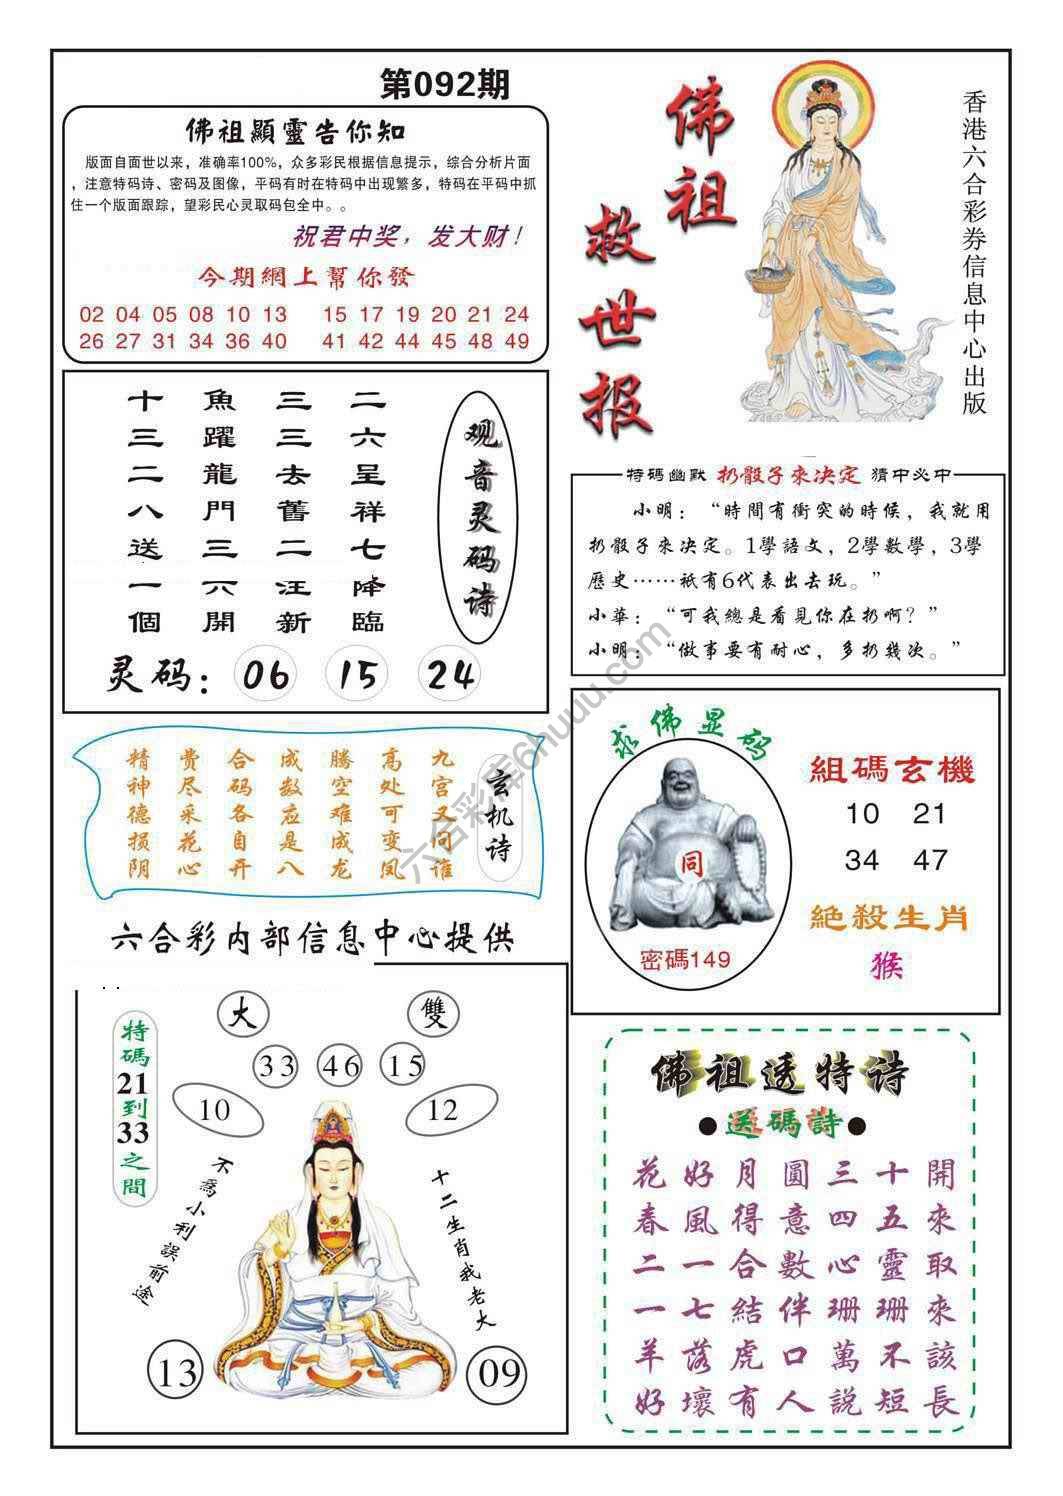 第092期
佛祖顯靈告你知
版面自面世以来，准确率100%，众多彩民根据信息提示，综合分析片面
，注意特码诗、密码及图像，平码有时在特码中出现繁多，特码在平码中抓
住一个版面跟踪，望彩民心灵取码包全中。。
祝君中奖，发大财！
今期網上幫你發
02 04 05 08 10 13 15 17 19 20 21 24
26 27 31 34 36 40 41 42 44 45 48 49
佛祖救世报
香港六合彩券信息中心出版
观音灵码诗
二六呈祥七降臨
三三去舊二汪新
魚躍龍門三六開
十三二八送一個
灵码：06 15 24
特碼幽默 扔骰子來决定 猜中必中
小明：“時間有衝突的時候，我就用
扔骰子來决定。1學語文，2學數學，3學
歷史……祇有6代表出去玩。”
小華：“可我總是看見你在扔啊？”
小明：“做事要有耐心，多扔幾次。”
玄机诗
九宫又问谁
高处可变凤
腾空难成龙
成数应是八
合码各自开
费尽采花心
精神德损阴
求佛显码
同
密碼149
組碼玄機
10 21
34 47
絶殺生肖
猴
六合彩内部信息中心提供
大
雙
33 46 15
10
12
特碼21到33之間
不爲小利誤前途
十二生肖我老大
13
09
佛祖透特诗
●送碼詩●
花好月圓三十開
春風得意四五來
二一合數心靈取
一七結伴珊珊來
羊落虎口萬不該
好壞有人説短長
六合彩库6huuu.com